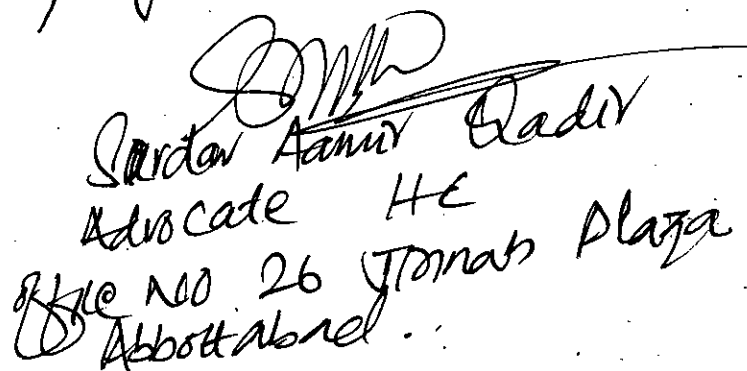 Sardar Aamir Qadir
Advocate HC
Office No. 26 Jinnah Plaza
Abbottabad.